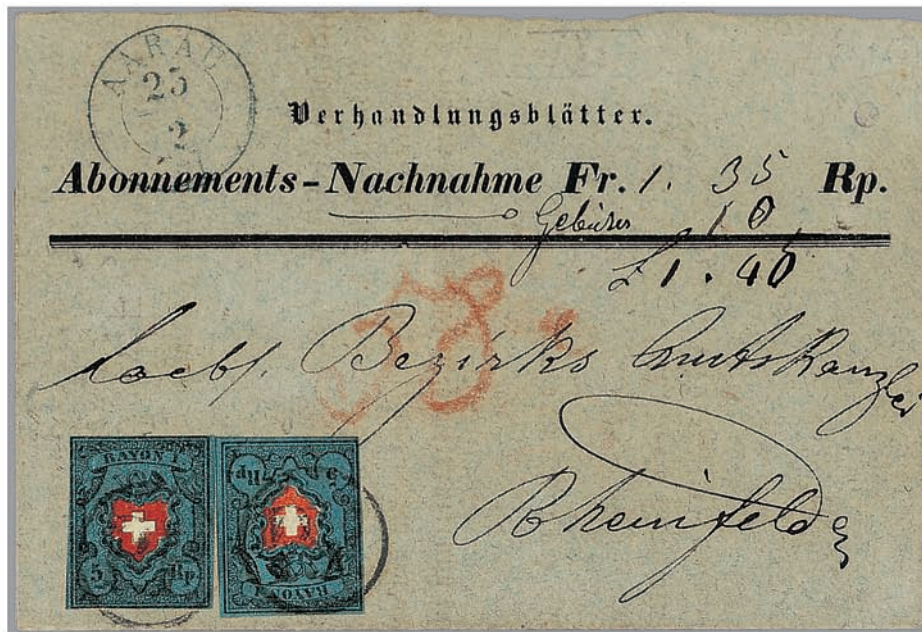 AARAU
25
2
Verhandlungsblätter.
Abonnements-Nachnahme Fr. 1. 35 Rp.
10
1.45
Bezirks Amtskanzlei
Rheinfelden
RAYON I
5 Rp
RAYON I
5 Rp